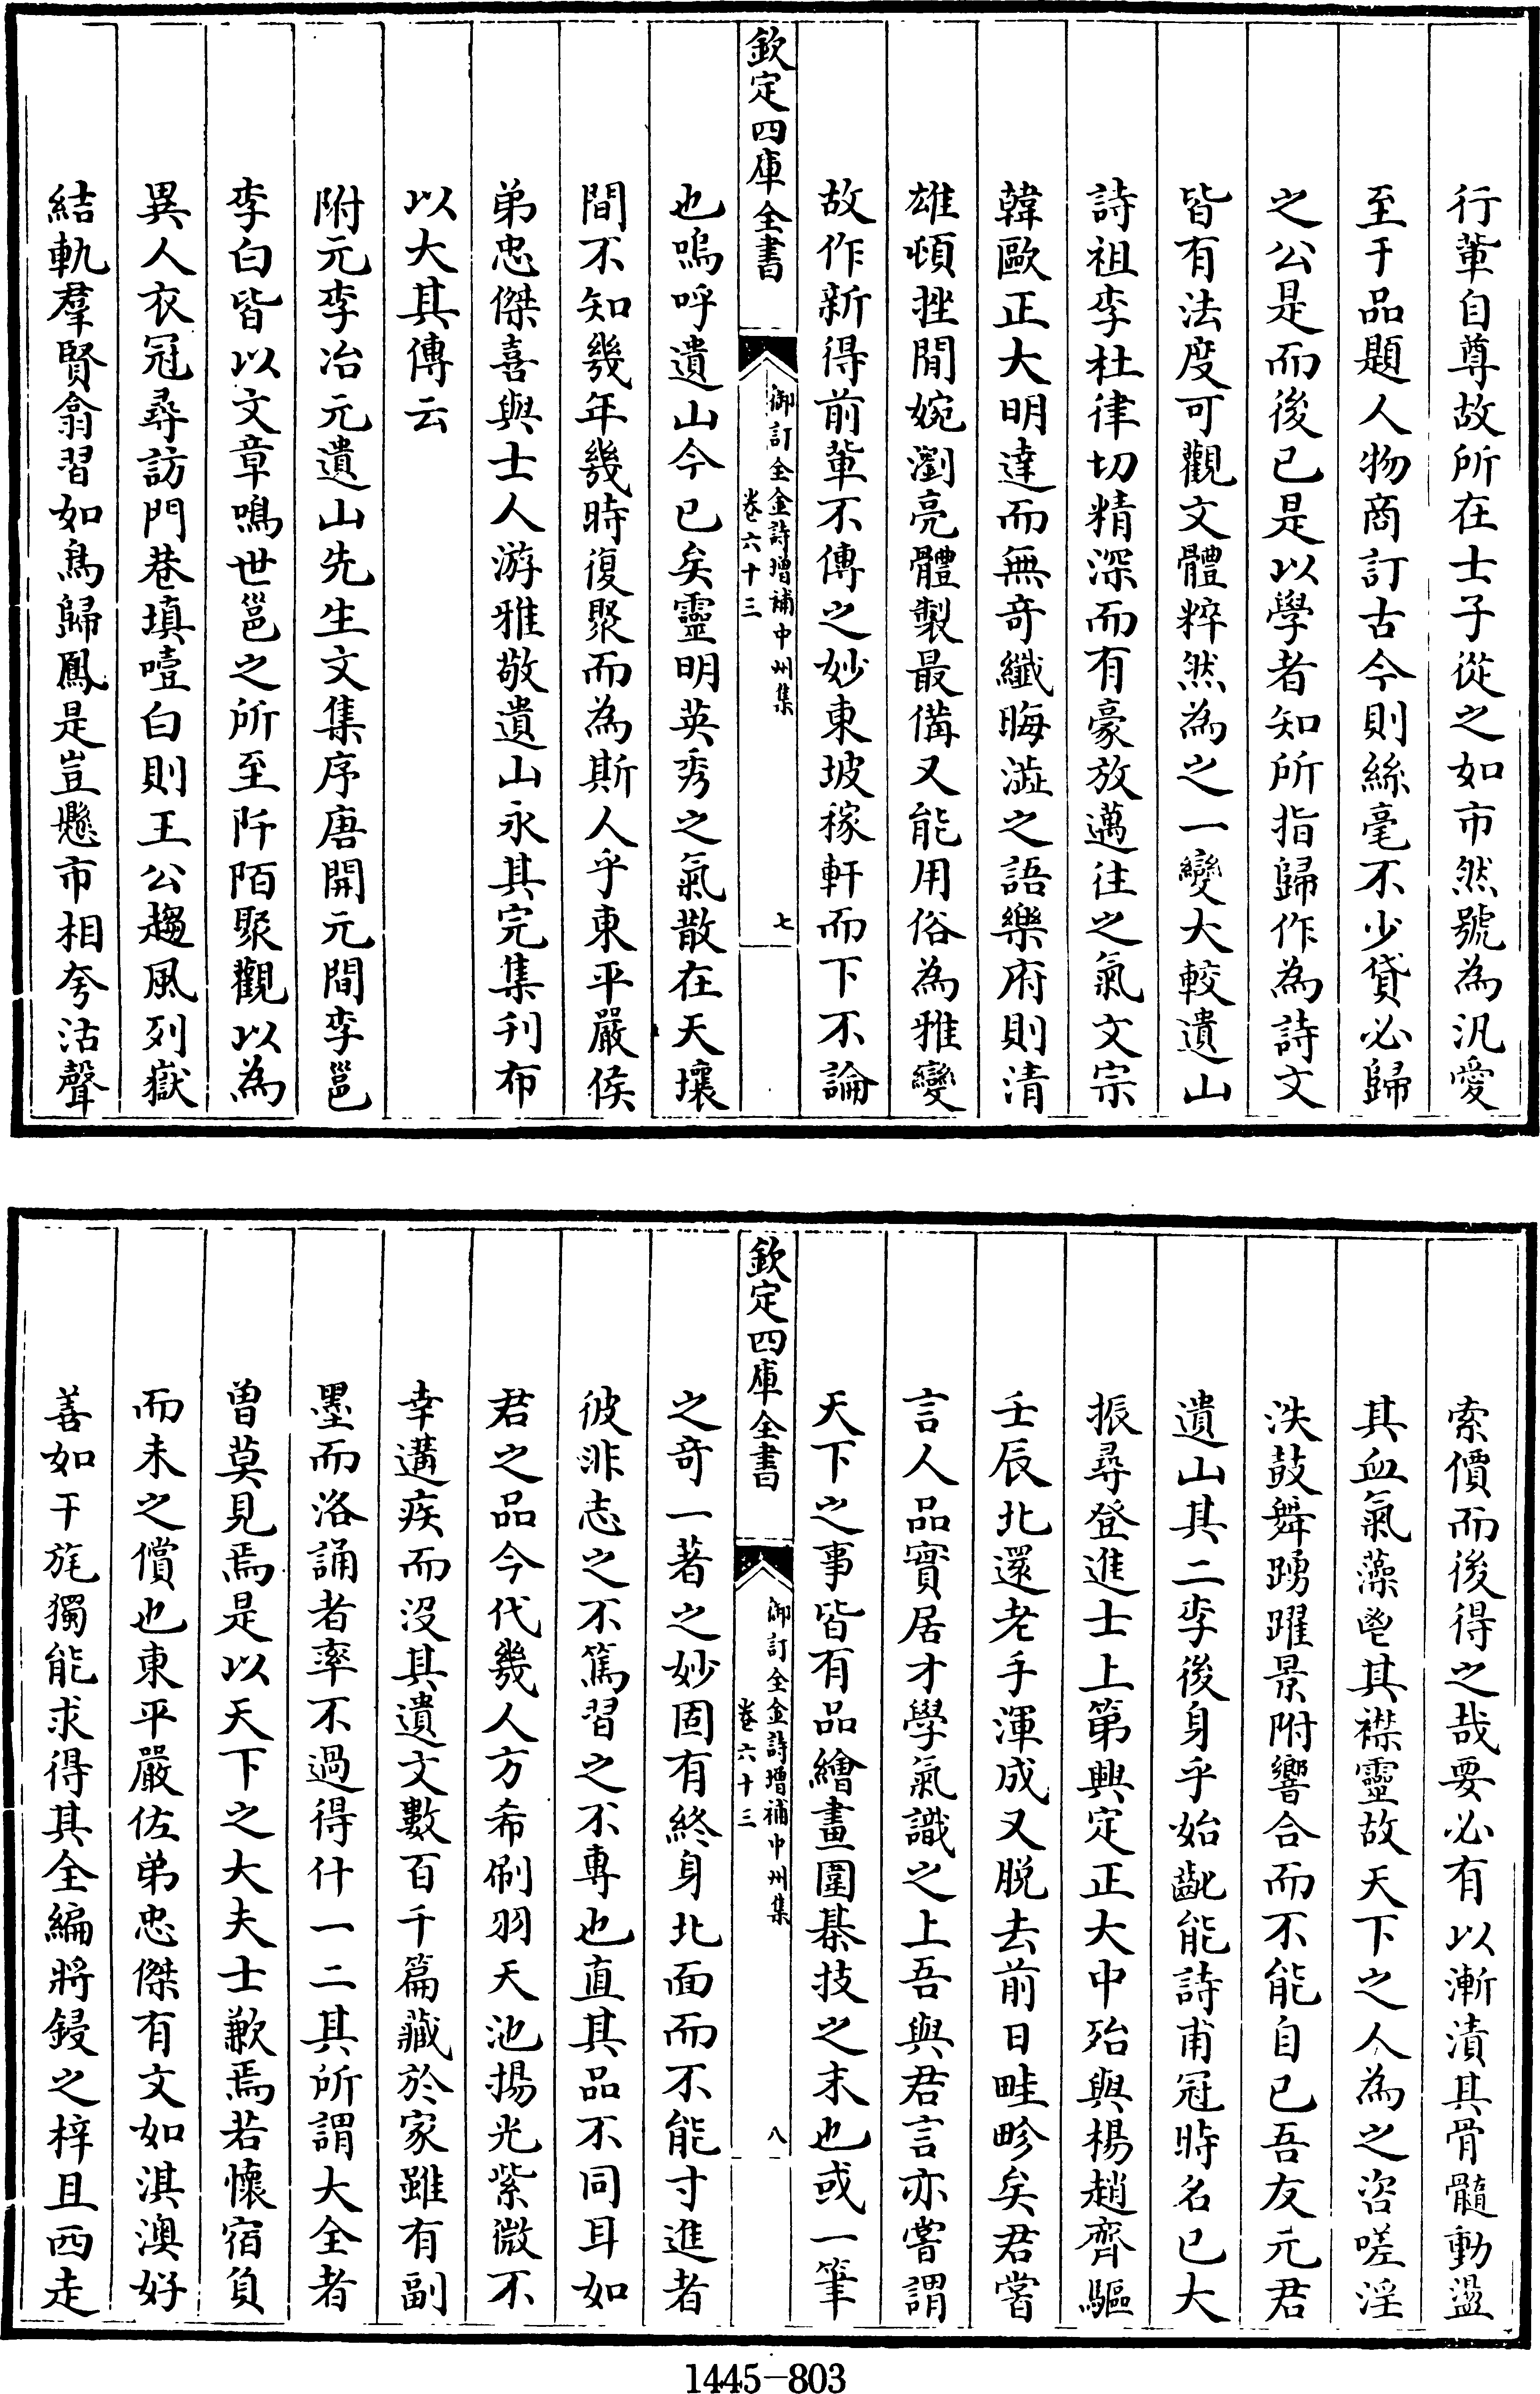 行輩自尊故所在士子從之如市然號為汎愛
至于品題人物商訂古今則絲毫不少貸必歸
之公是而後已是以學者知所指歸作為詩文
皆有法度可觀文體粹然為之一變大較遺山
詩祖李杜律切精深而有豪放邁往之氣文宗
韓歐正大明達而無奇纖晦澁之語樂府則清
雄頓挫閒婉瀏亮體製最備又能用俗為雅變
故作新得前輩不傳之妙東坡稼軒而下不論
欽定四庫全書
御訂全金詩增補中州集
卷六十三
七
也嗚呼遺山今已矣靈明英秀之氣散在天壤
間不知幾年幾時復聚而為斯人乎東平嚴侯
弟忠傑喜與士人游雅敬遺山永其完集刊布
以大其傳云
附元李冶元遺山先生文集序唐開元間李邕
李白皆以文章鳴世邕之所至阡陌聚觀以為
異人衣冠尋訪門巷填噎白則王公趨風列嶽
結軌羣賢翕習如鳥歸鳳是豈懸市相夸沽聲
索價而後得之哉要必有以漸漬其骨髓動盪
其血氣藻鬯其襟靈故天下之人為之咨嗟淫
泆鼓舞踴躍景附響合而不能自已吾友元君
遺山其二李後身乎始齔能詩甫冠時名已大
振尋登進士上第興定正大中殆與楊趙齊驅
壬辰北還老手渾成又脱去前日畦畛矣君嘗
言人品實居才學氣識之上吾與君言亦嘗謂
天下之事皆有品繪畫圍棊技之末也或一筆
欽定四庫全書
御訂全金詩增補中州集
卷六十三
八
之奇一著之妙固有終身北面而不能寸進者
彼非志之不篤習之不專也直其品不同耳如
君之品今代幾人方希刷羽天池揚光紫微不
幸遘疾而没其遺文數百千篇藏於家雖有副
墨而洛誦者率不過得什一二其所謂大全者
曽莫見焉是以天下之大夫士歉焉若懷宿負
而未之償也東平嚴佐弟忠傑有文如淇澳好
善如干旄獨能求得其全編將鋟之梓且西走
1445-803